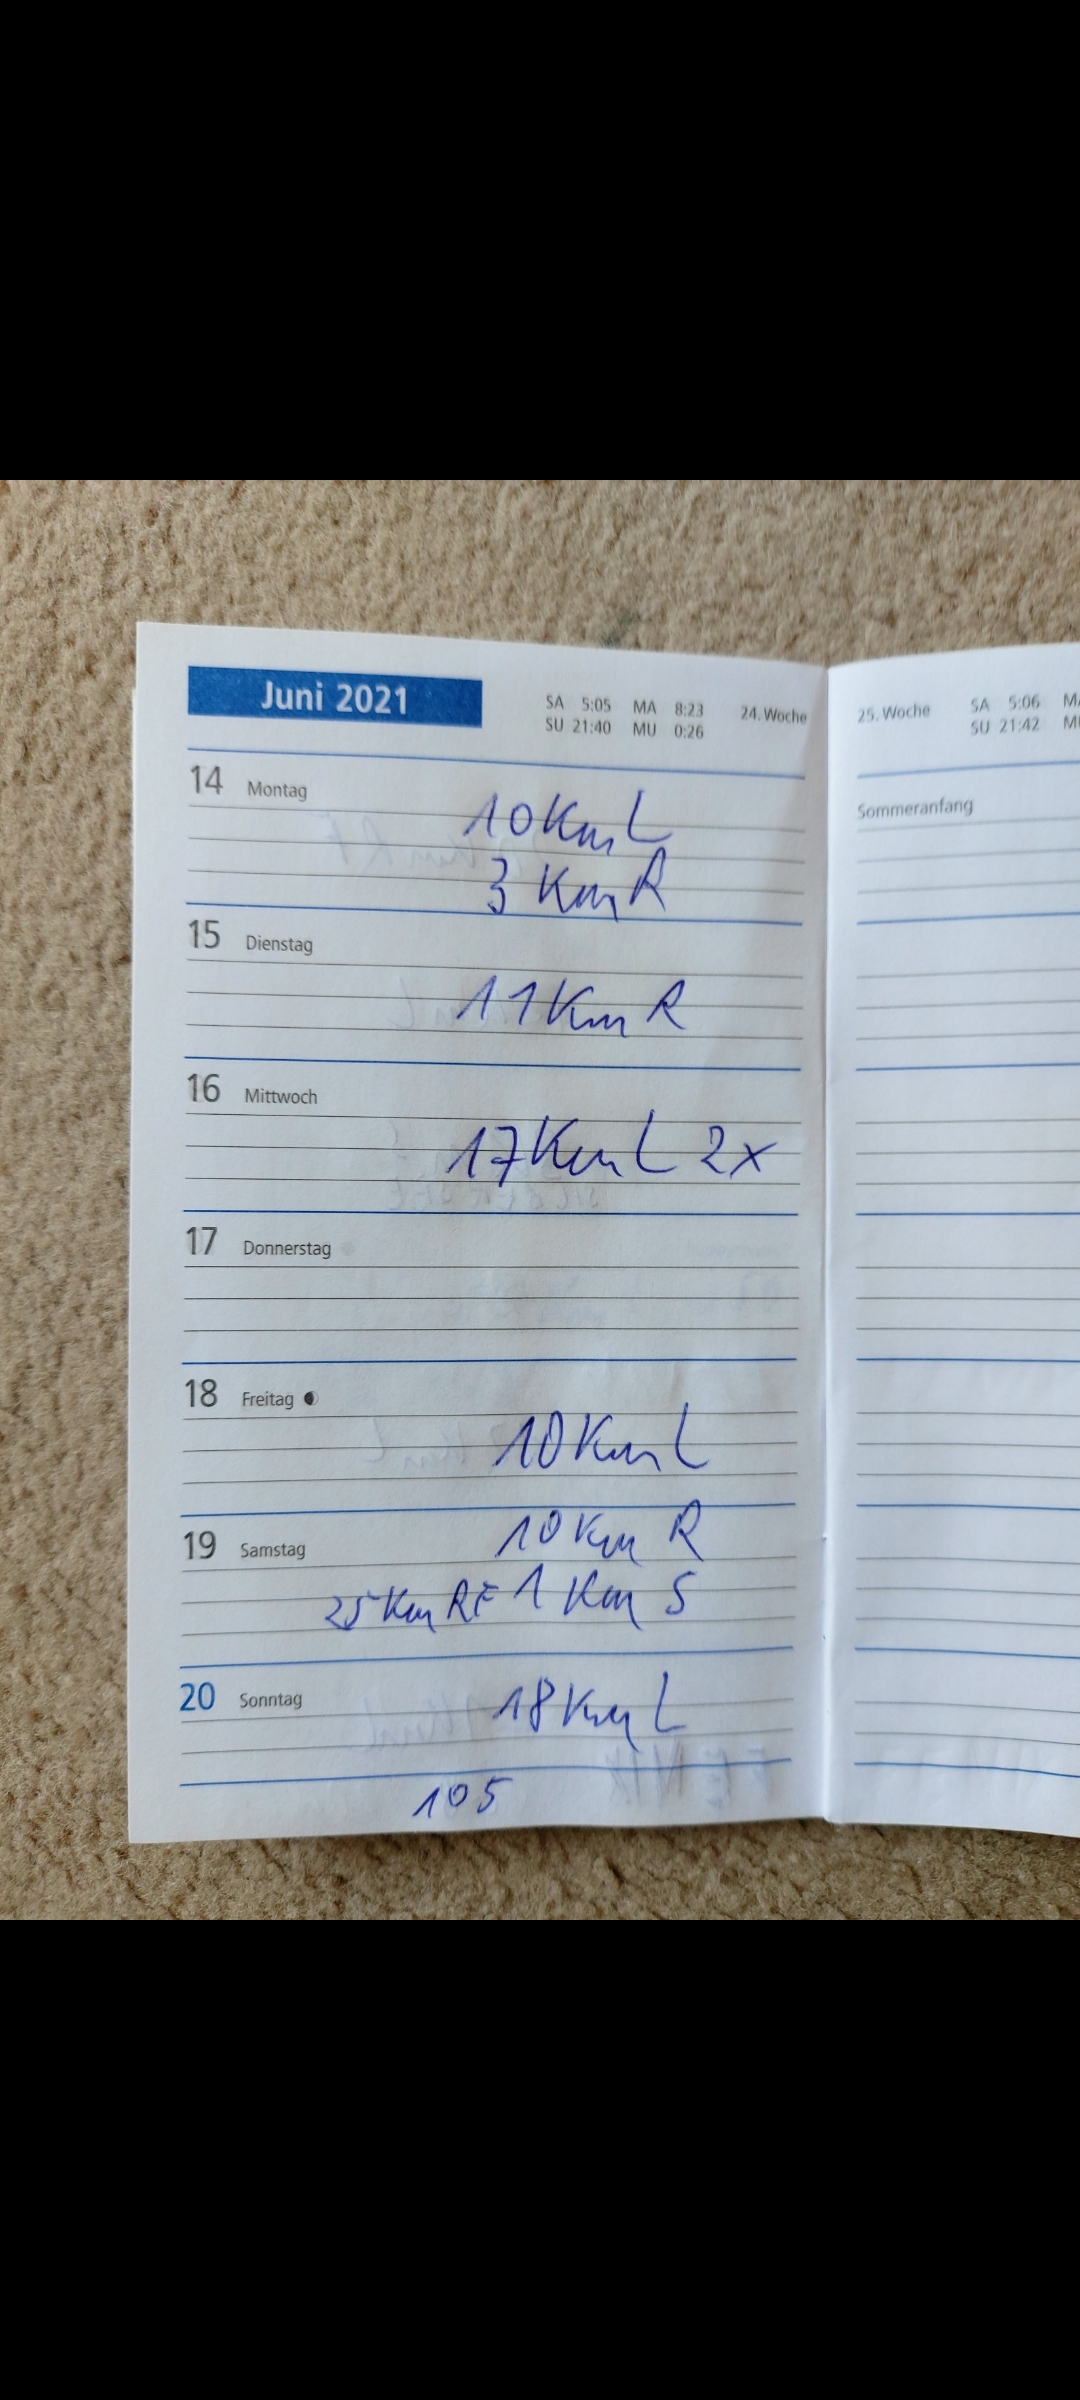 Juni 2021
SA 5:05 MA 8:23 24. Woche
SU 21:40 MU 0:26
14 Montag
10 Km L
3 Km R
15 Dienstag
11 Km R
16 Mittwoch
17 Km L 2x
17 Donnerstag
18 Freitag
10 Km L
19 Samstag
10 Km R
25 Km RF 1 Km S
20 Sonntag
18 Km L
105
25. Woche SA 5:06
SU 21:42
Sommeranfang